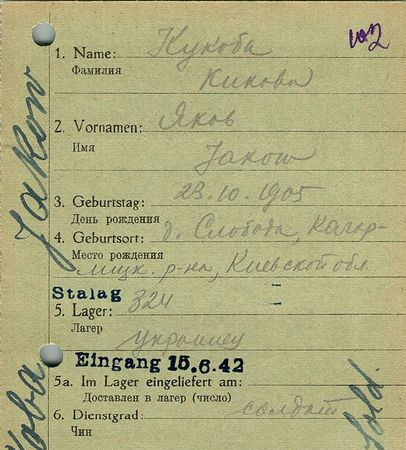 1. Name: Кукоба
Фамилия
Kukoba
2. Vornamen: Яков
Имя
Jakow
3. Geburtstag: 23.10.1905
День рождения
4. Geburtsort: д. Слобода, Кагар-
Место рождения
лицк. р-на, Киевской обл
Stalag
5. Lager: 324
Лагер
украинец
Eingang 15.6.42
5a. Im Lager eingeliefert am:
Доставлен в лагер (число)
6. Dienstgrad: солдат
Чин
Jakow
koba
Sold.